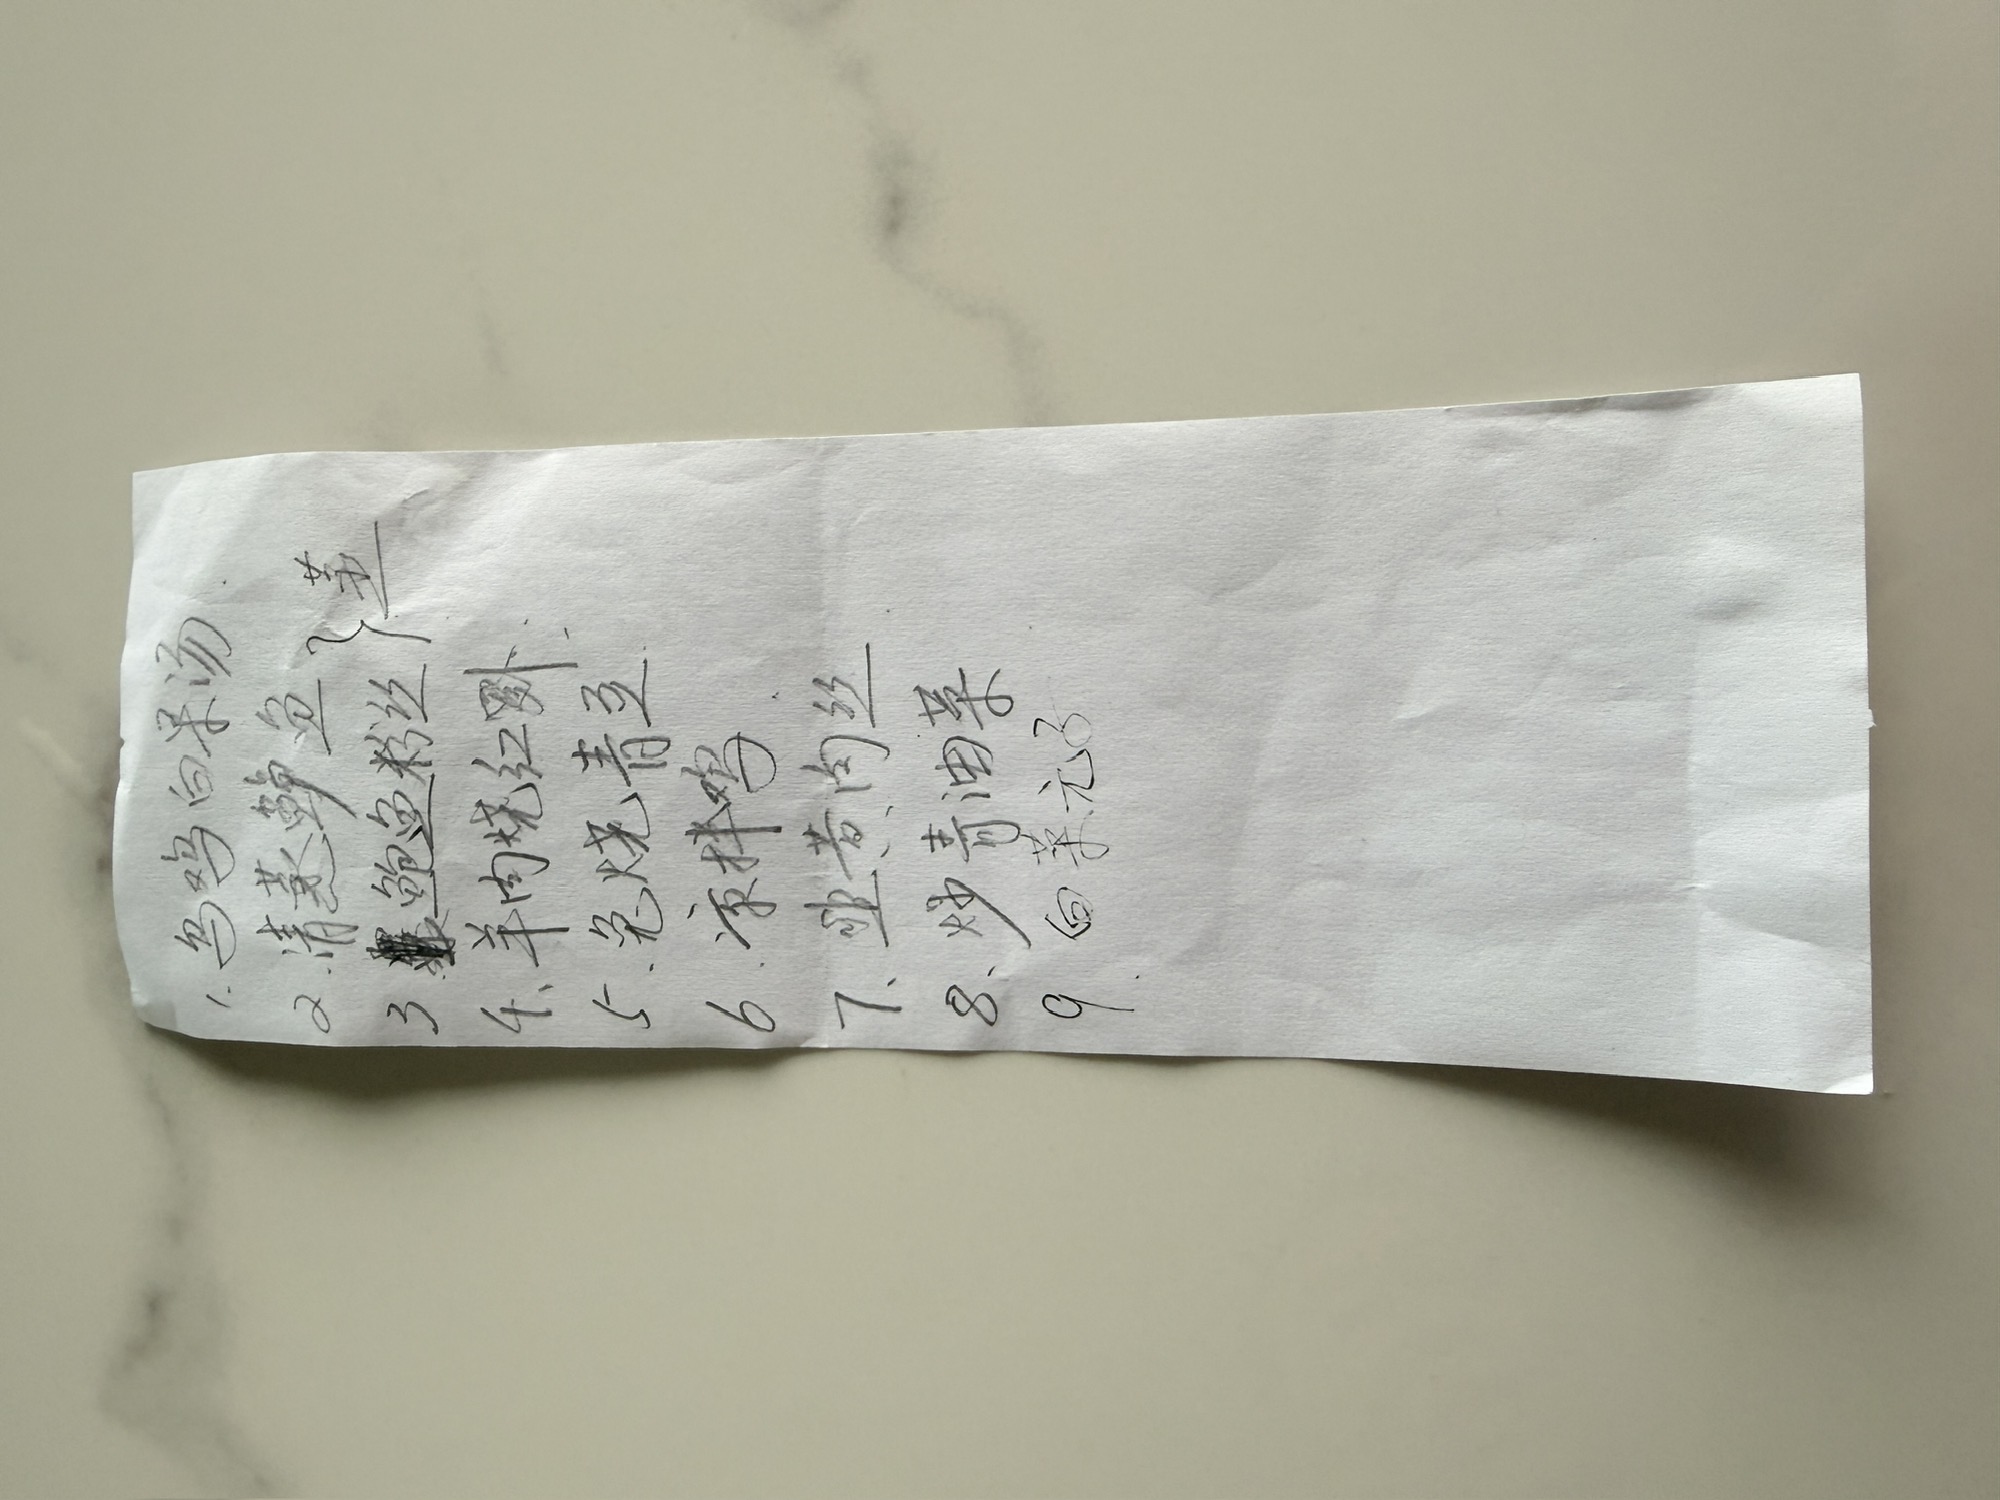 1. 乌鸡白果汤
2. 清蒸鲈鱼
3 鲍鱼粉丝 } 蒸
4、羊肉烧红
5. 兔烧青豆
6. 凉拌鸡
7、韭黄肉丝
8、炒青油菜
9. 白菜元子